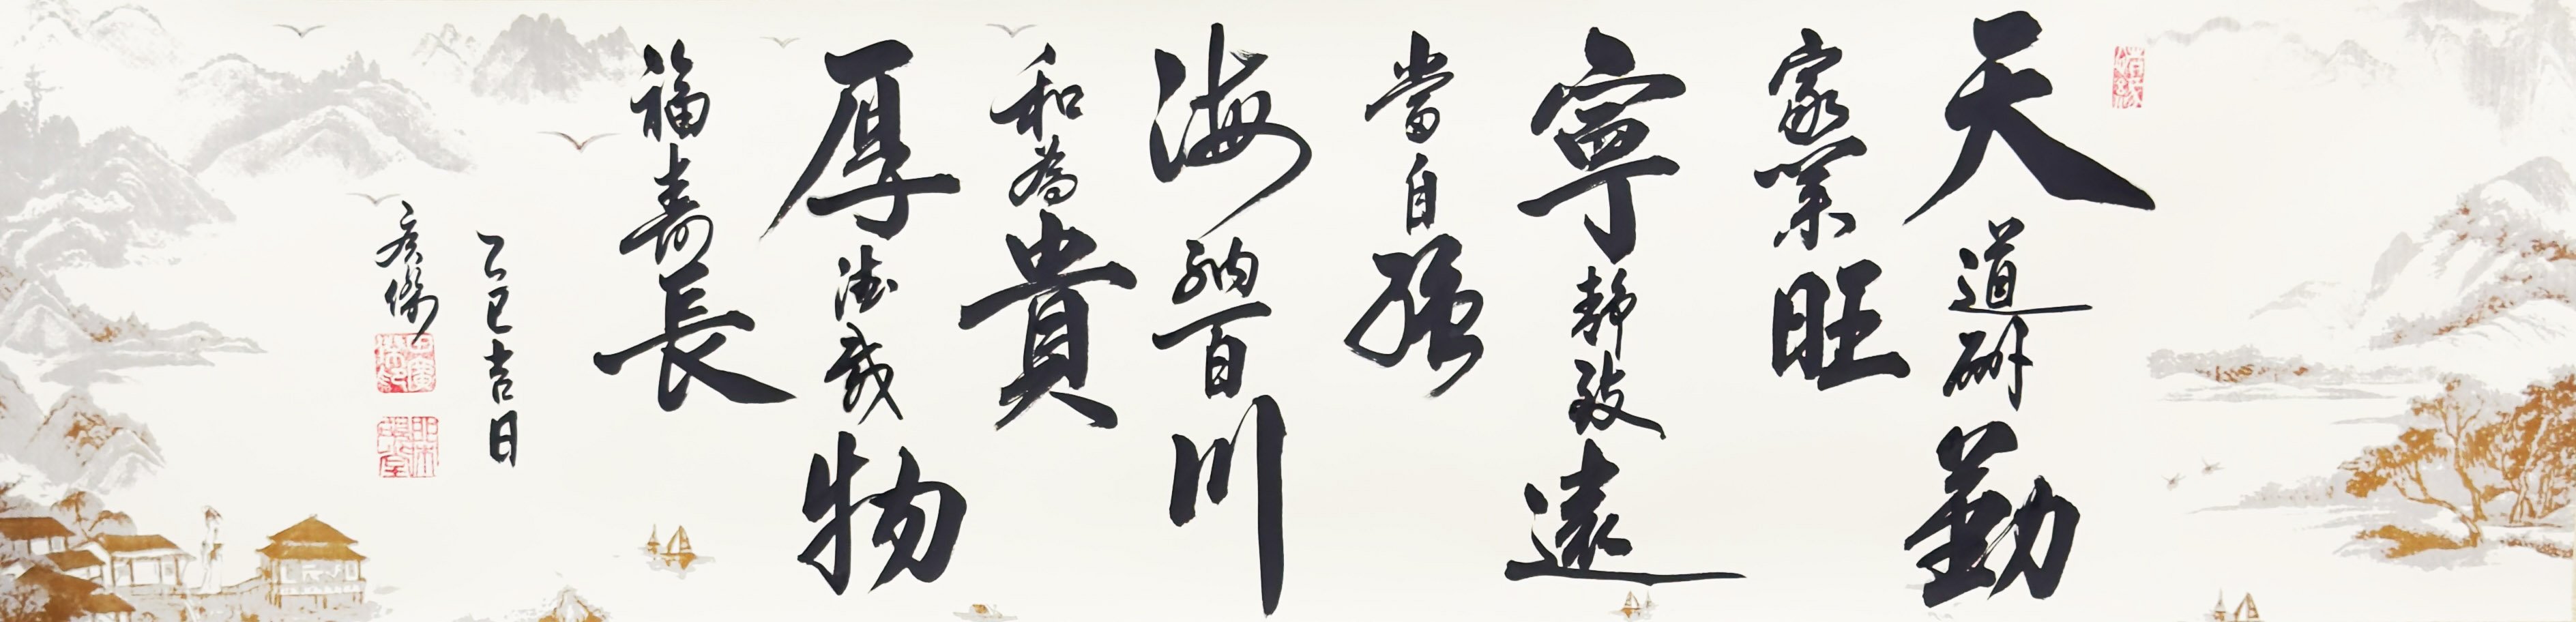 天道酬勤
家業旺
寧靜致遠
當自强
海納百川
和為貴
厚德載物
福壽長
乙巳吉日